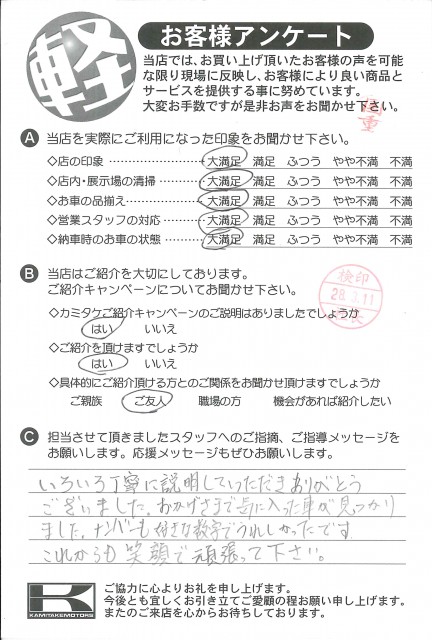 軽
お客様アンケート
当店では、お買い上げ頂いたお客様の声を可能
な限り現場に反映し、お客様により良い商品と
サービスを提供する事に努めています。
大変お手数ですが是非お声をお聞かせ下さい。
A 当店を実際にご利用になった印象をお聞かせ下さい。
◇店の印象 ………………… 大満足 満足 ふつう やや不満 不満
◇店内・展示場の清掃 ………… 大満足 満足 ふつう やや不満 不満
◇お車の品揃え ……………… 大満足 満足 ふつう やや不満 不満
◇営業スタッフの対応 ………… 大満足 満足 ふつう やや不満 不満
◇納車時のお車の状態 ………… 大満足 満足 ふつう やや不満 不満
B 当店はご紹介を大切にしております。
ご紹介キャンペーンについてお聞かせ下さい。
検印
28.3.11
◇カミタケご紹介キャンペーンのご説明はありましたでしょうか
はい いいえ
◇ご紹介を頂けますでしょうか
はい いいえ
◇具体的にご紹介頂ける方とのご関係をお聞かせ頂けますでしょうか
ご親族 ご友人 職場の方 機会があれば紹介したい
C 担当させて頂きましたスタッフへのご指摘、ご指導メッセージを
お願いします。応援メッセージもぜひお願いします。
いろいろ丁寧に説明していただきありがとう
ございました。おかげさまで気に入った車が見つかり
ました。ナンバーも好きな数字でうれしかったです
これからも笑顔で頑張って下さい。
KAMITAKEMOTORS
ご協力に心よりお礼を申し上げます。
今後とも宜しくお引き立てご愛顧の程お願い申し上げます。
またのご来店を心からお待ちしております。